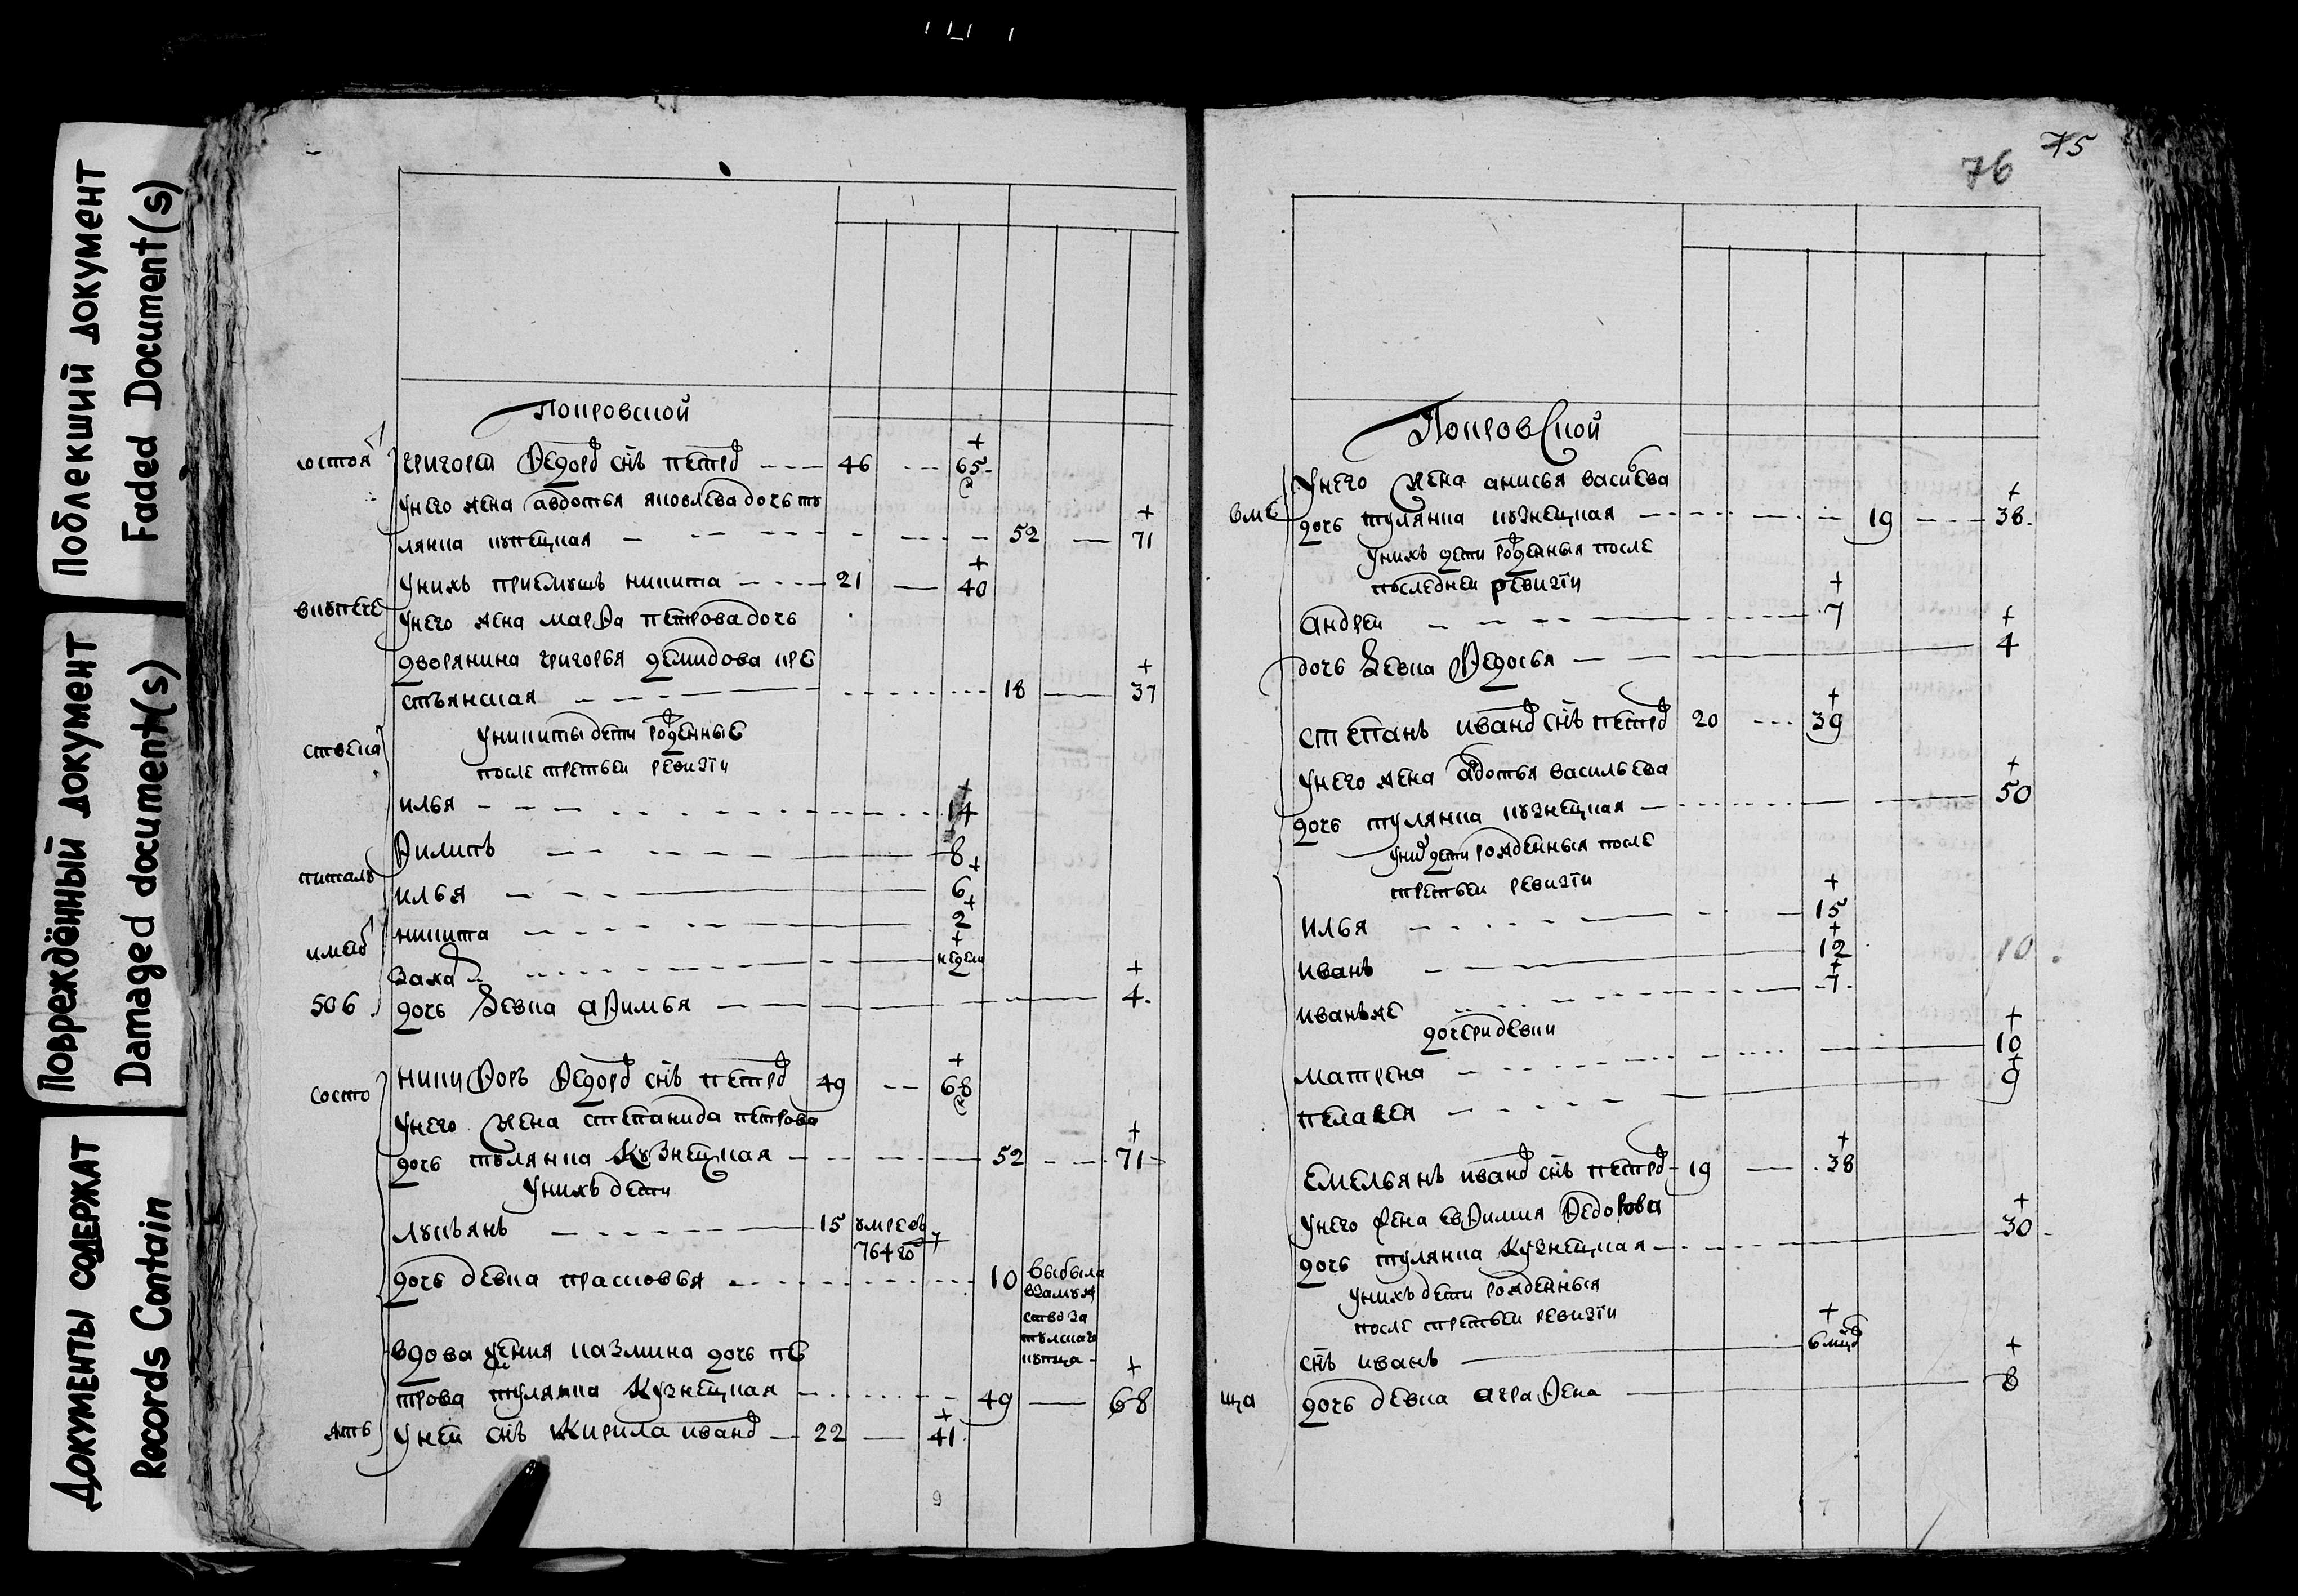 Поблекший документ
Faded Document(s)
Повреждённый документ
Damaged document(s)
Документы содержат
Records Contain
Покровской
состоя григорей Федоров снъ петров 46 65
У него жена авдотья яковлева дочь ту
лянка купецкая 52 71
У нихъ приемышъ никита 21 40
вкупече У него жена марфа петрова дочь
дворянина григорья демидова кре
стьянская 18 37
ствена У никиты дети рожденные
после третьей ревизіи
илья 14
Филипъ 8
питаль илья 6
имено никита 2
Захар недель
506 дочь девка афимья 4
состо никифоръ Федоров снъ петров 49 68
У него жена степанида петрова
дочь тулянка Кузнецкая 52 71
У нихъ дети
лукьянъ 15 умре въ
764 го
дочь девка прасковья 10 выбыла
взамуж
ство за
тулскаго
купца
вдова ксения казмина дочь пе
трова тулянка Кузнецкая 49 68
ять У ней снъ Кирила иванов 22 41
9
75
76
Покровской
У него жена анисья васильева
вме дочь тулянка кузнецкая 19 38
У нихъ дети рожденныя после
последней ревизіи
андрей 7
дочь девка Федосья 4
степанъ иванов снъ петров 20 39
У него жена авдотья васильева
дочь тулянка кузнецкая 50
У них дети рожденныя после
третьей ревизіи
илья 15
иванъ 12 10
иванъ же 7
дочери девки
матрена 10
пелагея 9
емельянъ иванов снъ петров 19 38
У него жена евфимия Федорова
дочь тулянка Кузнецкая 30
У нихъ дети рожденныя
после третьей ревизіи
снъ иванъ 6 мцов
ща дочь девка аграфена 8
7